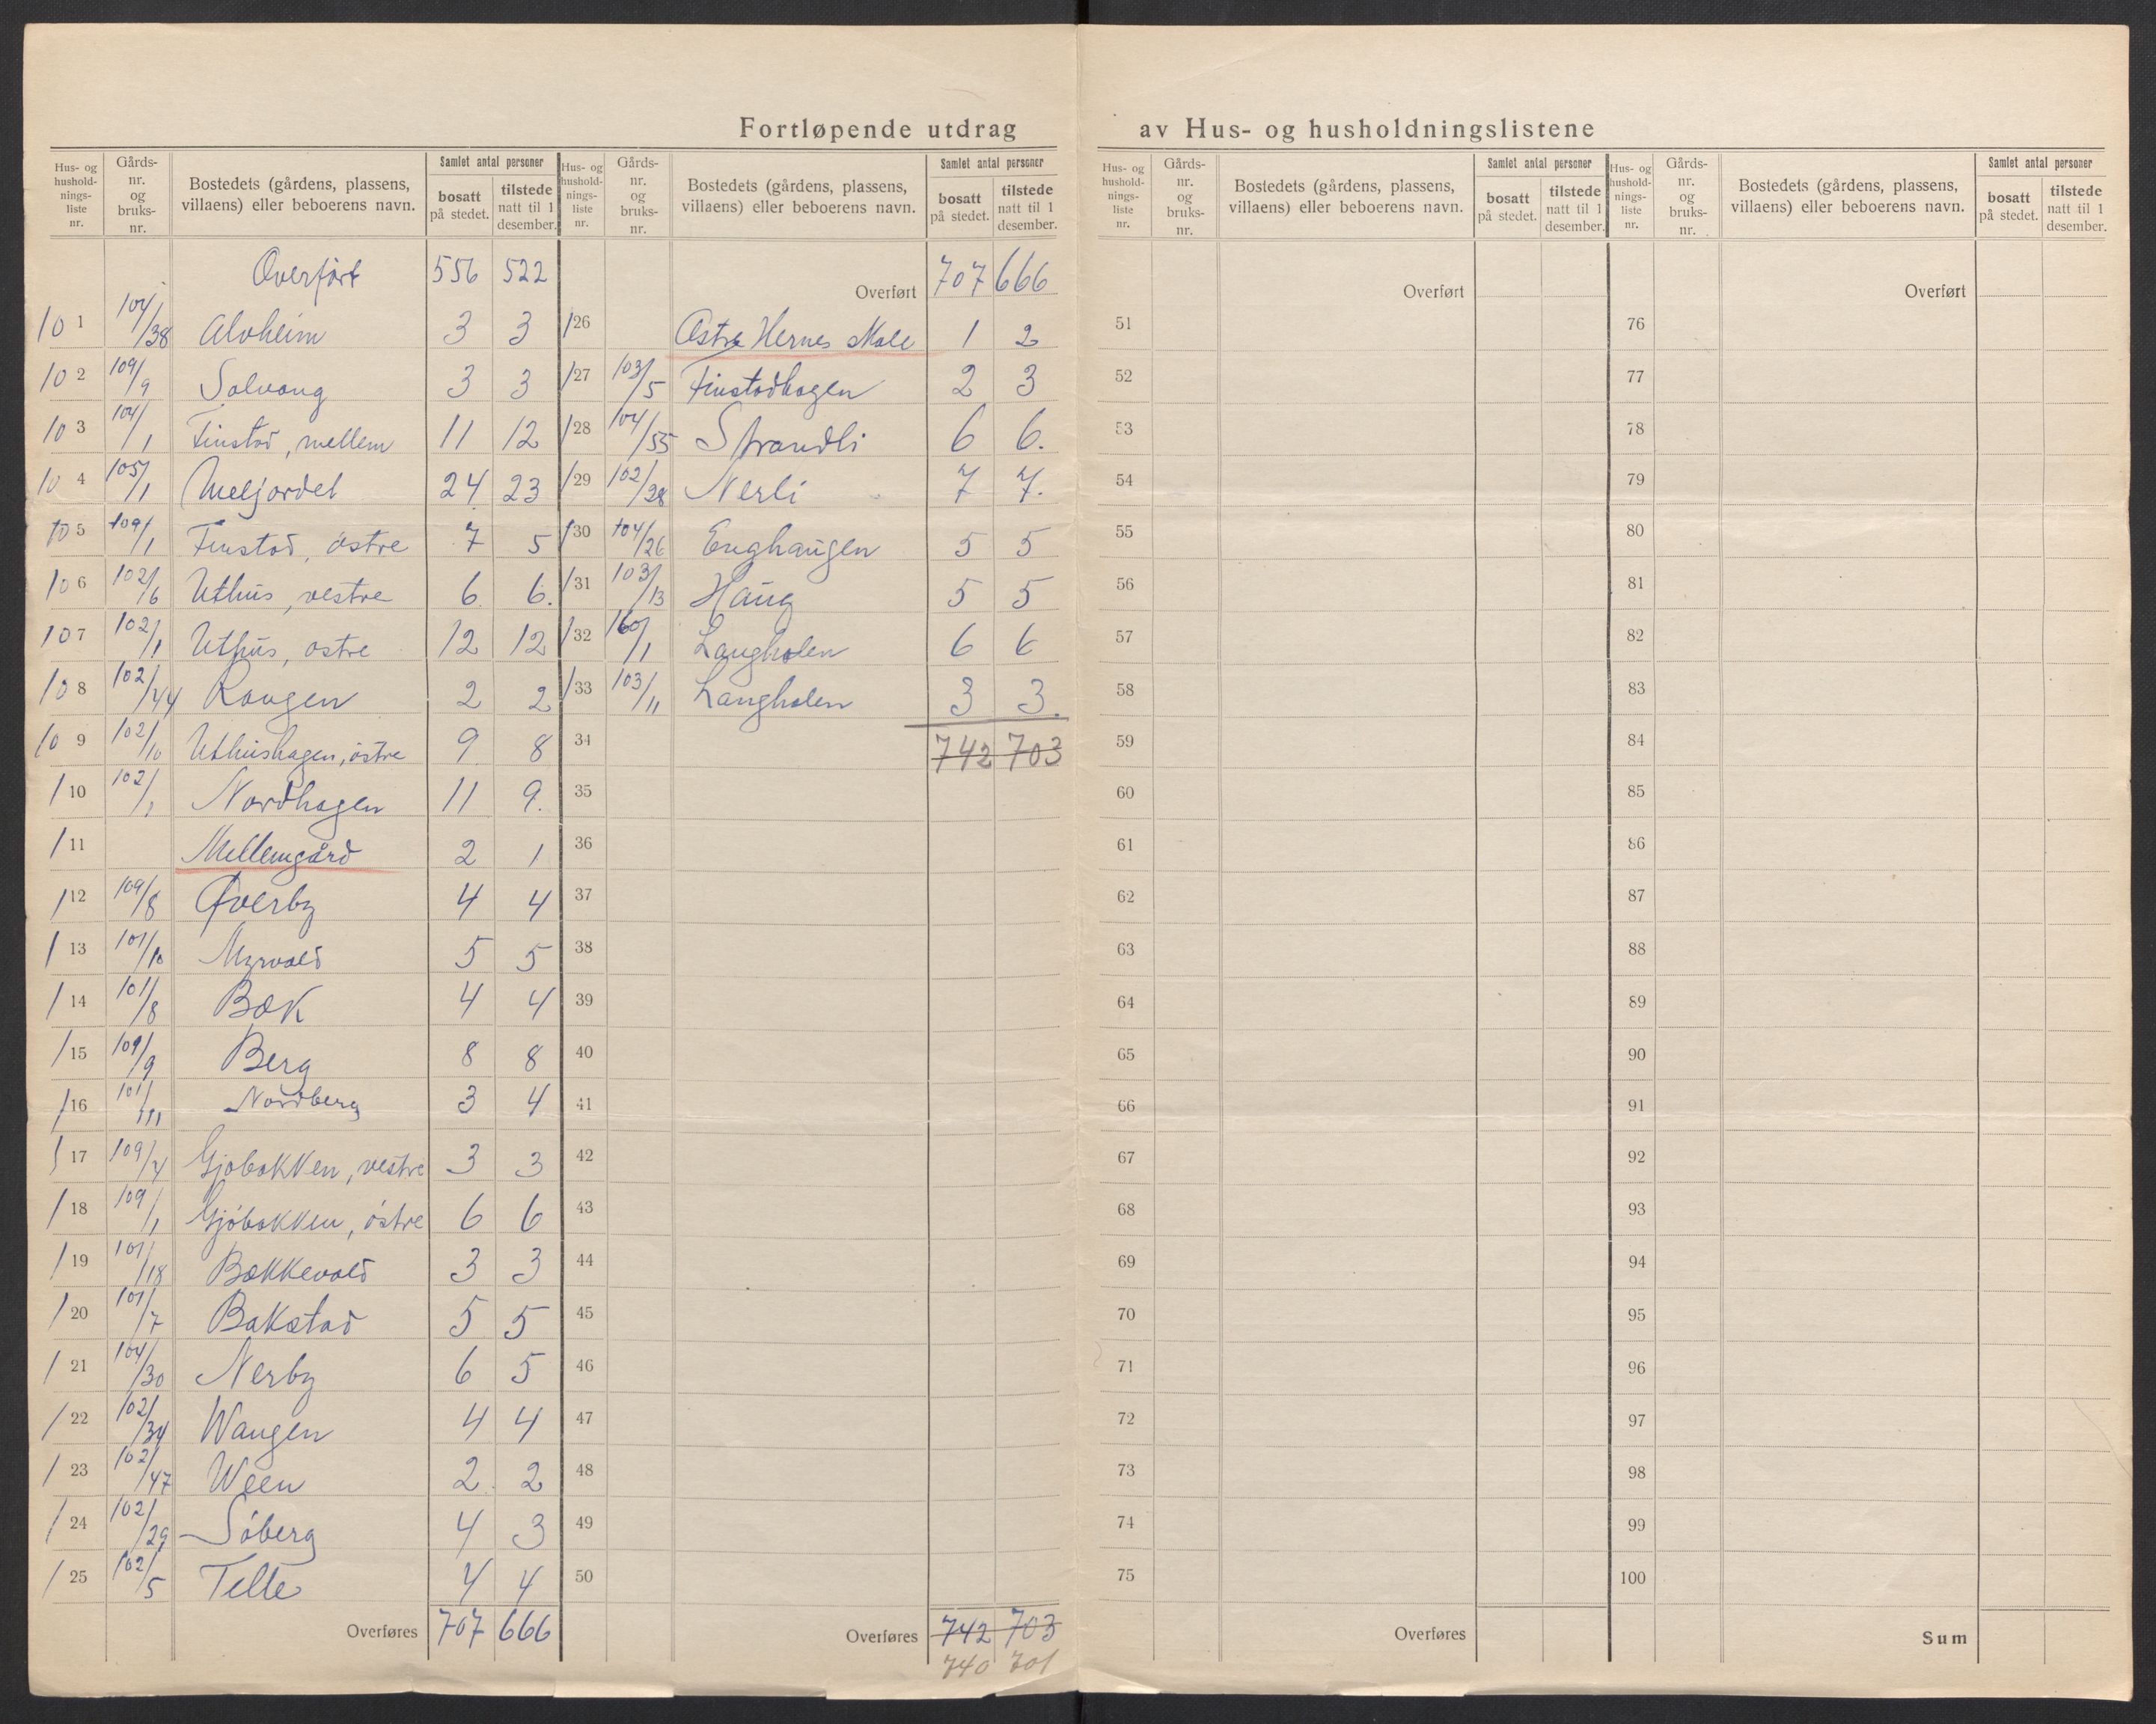 Fortløpende utdrag av Hus- og husholdningslistene
Hus- og husholdnings-liste nr. Gårds-nr. og bruks-nr. Bostedets (gårdens, plassens, villaens) eller beboerens navn. Samlet antal personer bosatt på stedet. tilstede natt til 1 desember.
Overført 556 522
101 104/38 Alvheim 3 3
102 109/9 Solvang 3 3
103 104/1 Finstad, mellem 11 12
104 105/1 Meljordet 24 23
105 109/1 Finstad, østre 7 5
106 102/6 Uthus, vestre 6 6
107 102/1 Uthus, østre 12 12
108 102/44 Haugen 2 2
109 102/10 Uthushagen, østre 9 8
110 102/1 Nordhagen 11 9
111 Mellemgård 2 1
112 109/8 Øverby 4 4
113 101/10 Myrvold 5 5
114 101/8 Bæk 4 4
115 109/9 Berg 8 8
116 101/111 Nordberg 3 4
117 109/4 Gjøbakken, vestre 3 3
118 109/1 Gjøbakken, østre 6 6
119 101/18 Bækkevold 3 3
120 101/7 Bakstad 5 5
121 104/30 Nerby 6 5
122 102/34 Wangen 4 4
123 102/47 Ween 2 2
124 102/29 Søberg 4 3
125 102/5 Telle 4 4
Overføres 707 666
Hus- og husholdnings-liste nr. Gårds-nr. og bruks-nr. Bostedets (gårdens, plassens, villaens) eller beboerens navn. Samlet antal personer bosatt på stedet. tilstede natt til 1 desember.
Overført 707 666
126 Østre Hernes skole 1 2
127 103/5 Finstadhagen 2 3
128 104/55 Strandli 6 6.
129 102/28 Nerli 7 7.
130 104/26 Enghaugen 5 5
131 103/13 Haug 5 5
132 160/1 Langholen 6 6
133 103/11 Langholen 3 3.
34 742 703
35
36
37
38
39
40
41
42
43
44
45
46
47
48
49
50
Overføres 742 703
740 701
Hus- og husholdnings-liste nr. Gårds-nr. og bruks-nr. Bostedets (gårdens, plassens, villaens) eller beboerens navn. Samlet antal personer bosatt på stedet. tilstede natt til 1 desember.
Overført
51
52
53
54
55
56
57
58
59
60
61
62
63
64
65
66
67
68
69
70
71
72
73
74
75
Overføres
Hus- og husholdnings-liste nr. Gårds-nr. og bruks-nr. Bostedets (gårdens, plassens, villaens) eller beboerens navn. Samlet antal personer bosatt på stedet. tilstede natt til 1 desember.
Overført
76
77
78
79
80
81
82
83
84
85
86
87
88
89
90
91
92
93
94
95
96
97
98
99
100
Sum